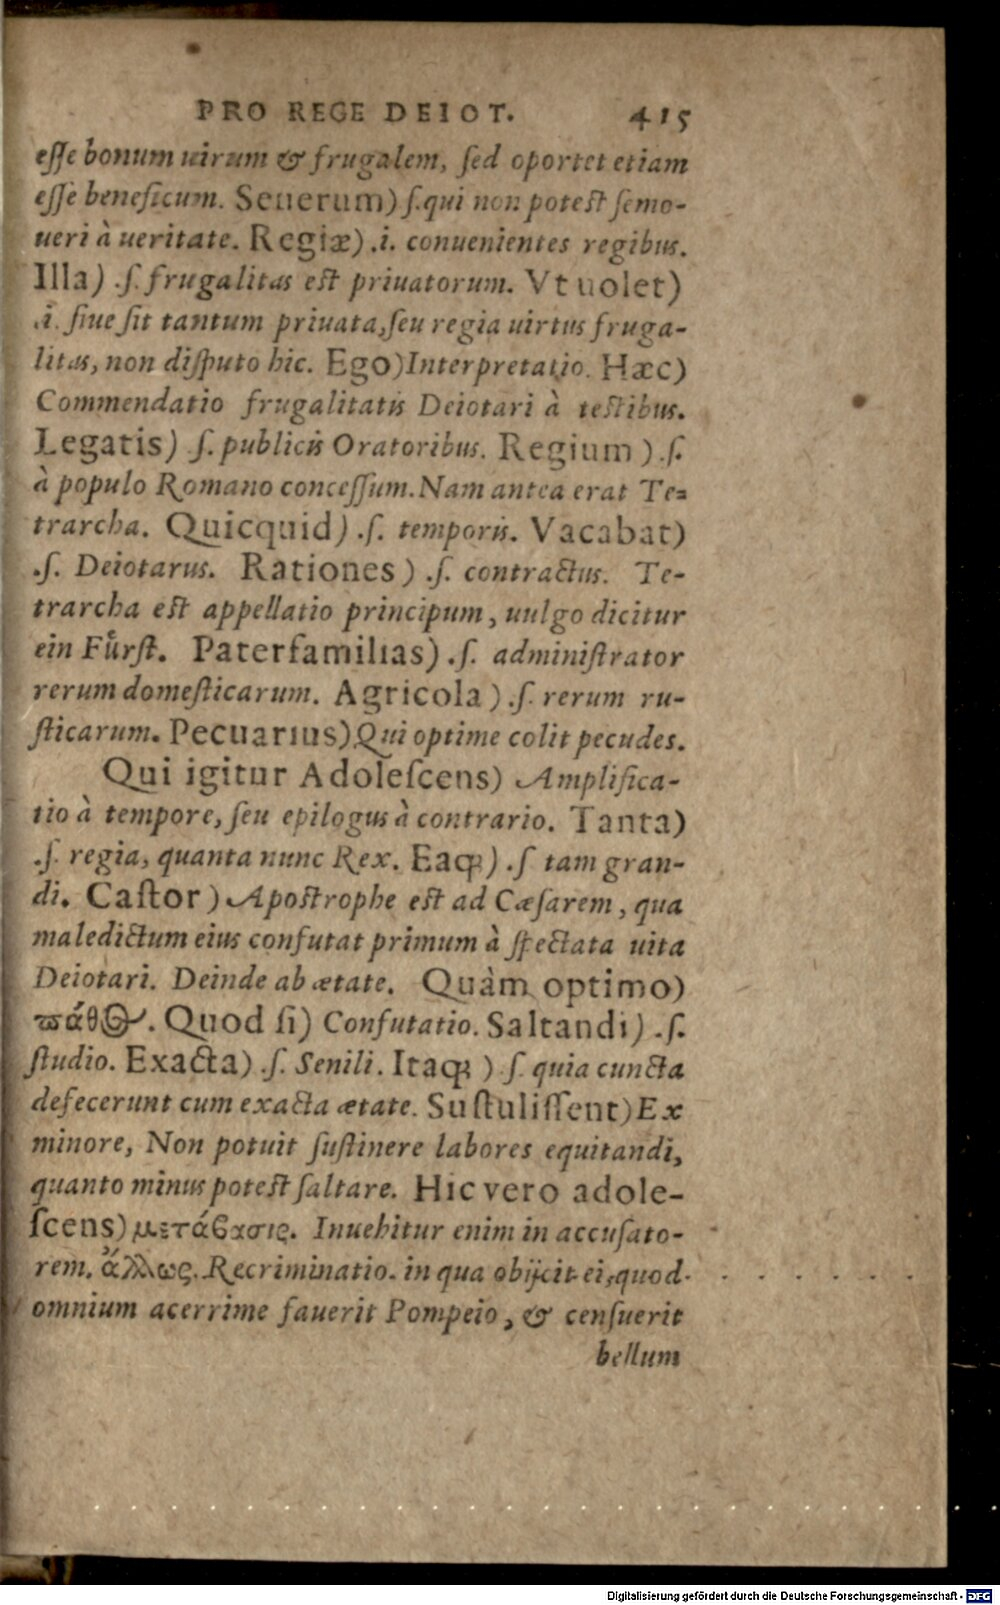 PRO REGE DEIOT. 415
esse bonum uirum & frugalem, sed oportet etiam
esse beneficum. Seuerum) s. qui non potest semo-
ueri à ueritate. Regiæ) .i. conuenientes regibus.
Illa) .s. frugalitas est priuatorum. Vt uolet)
.i. siue sit tantum priuata, seu regia uirtus fruga-
litas, non disputo hic. Ego) Interpretatio. Hæc)
Commendatio frugalitatis Deiotari à testibus.
Legatis) .s. publicis Oratoribus. Regium) .s.
à populo Romano concessum. Nam antea erat Te-
trarcha. Quicquid) .s. temporis. Vacabat)
.s. Deiotarus. Rationes) .s. contractus. Te-
trarcha est appellatio principum, uulgo dicitur
ein Fuͤrst. Paterfamilias) .s. administrator
rerum domesticarum. Agricola) .s. rerum ru-
sticarum. Pecuarius) Qui optime colit pecudes.
Qui igitur Adolescens) Amplifica-
tio à tempore, seu epilogus à contrario. Tanta)
.s. regia, quanta nunc Rex. Eaq́;) .s tam gran-
di. Castor) Apostrophe est ad Cæsarem, qua
maledictum eius confutat primum à spectata uita
Deiotari. Deinde ab ætate. Quàm optimo)
πάθος. Quod si) Confutatio. Saltandi) .s.
studio. Exacta) .s. Senili. Itaq;) s. quia cuncta
defecerunt cum exacta ætate. Sustulissent) Ex
minore, Non potuit sustinere labores equitandi,
quanto minus potest saltare. Hic vero adole-
scens) μετάβασις. Inuehitur enim in accusato-
rem. ἄλλως. Recriminatio. in qua obijcit ei, quod
omnium acerrime fauerit Pompeio, & censuerit
bellum
Digitalisierung gefördert durch die Deutsche Forschungsgemeinschaft - DFG